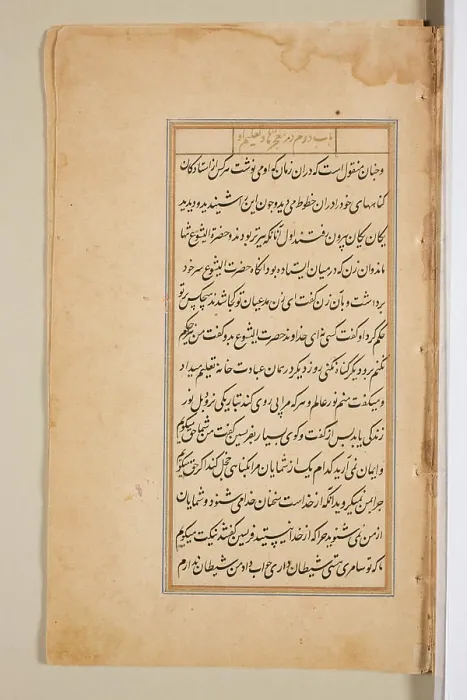 باب دوم در معجزها و تعلیم او
و چنان منقول است که در ان زمان که او می نوشت هر کس از استادکان
کناههای خود را در ان خطوط می دید و چون این را شنیدند و دیدند
یکان یکان بیرون رفتند اول آنانکه پیرتر بودند و حضرة الیشوع تنها
ماند و ان زن که در میان ایستاده بود انکاه حضرت الیشوع سر خود
برداشت و بآن زن کفت ای زن مدعیان تو کجا شدند هیچکس بر تو
حکم کرد او کفت کسی نه ای خداوند حضرت الیشوع بدو کفت من نیز حکم
نکنم برو دیکر کناه نکنی روز دیکر در همان عبادت خانه تعلیم میداد
و میکفت منم نور عالم و هر که مرا پی روی کند بتاریکی نرود بل نور
زندکی یابد پس از کفت و کوی بسیار بفریسین کفت من شما را حق میکویم
و ایمان نمی آرید کدام یک از شمایان مرا بکناهی خجل کند اکر حق میکویم
چرا بمن نمیکروید آنکه از خداست سخنان خدا می شنود و شمایان
از من نمی شنوید چرا که از خدا نیستید فریسین کفتند نیکت میکویم
ما که تو سامری هستی شیطان داری جواب داد من شیطان ندارم